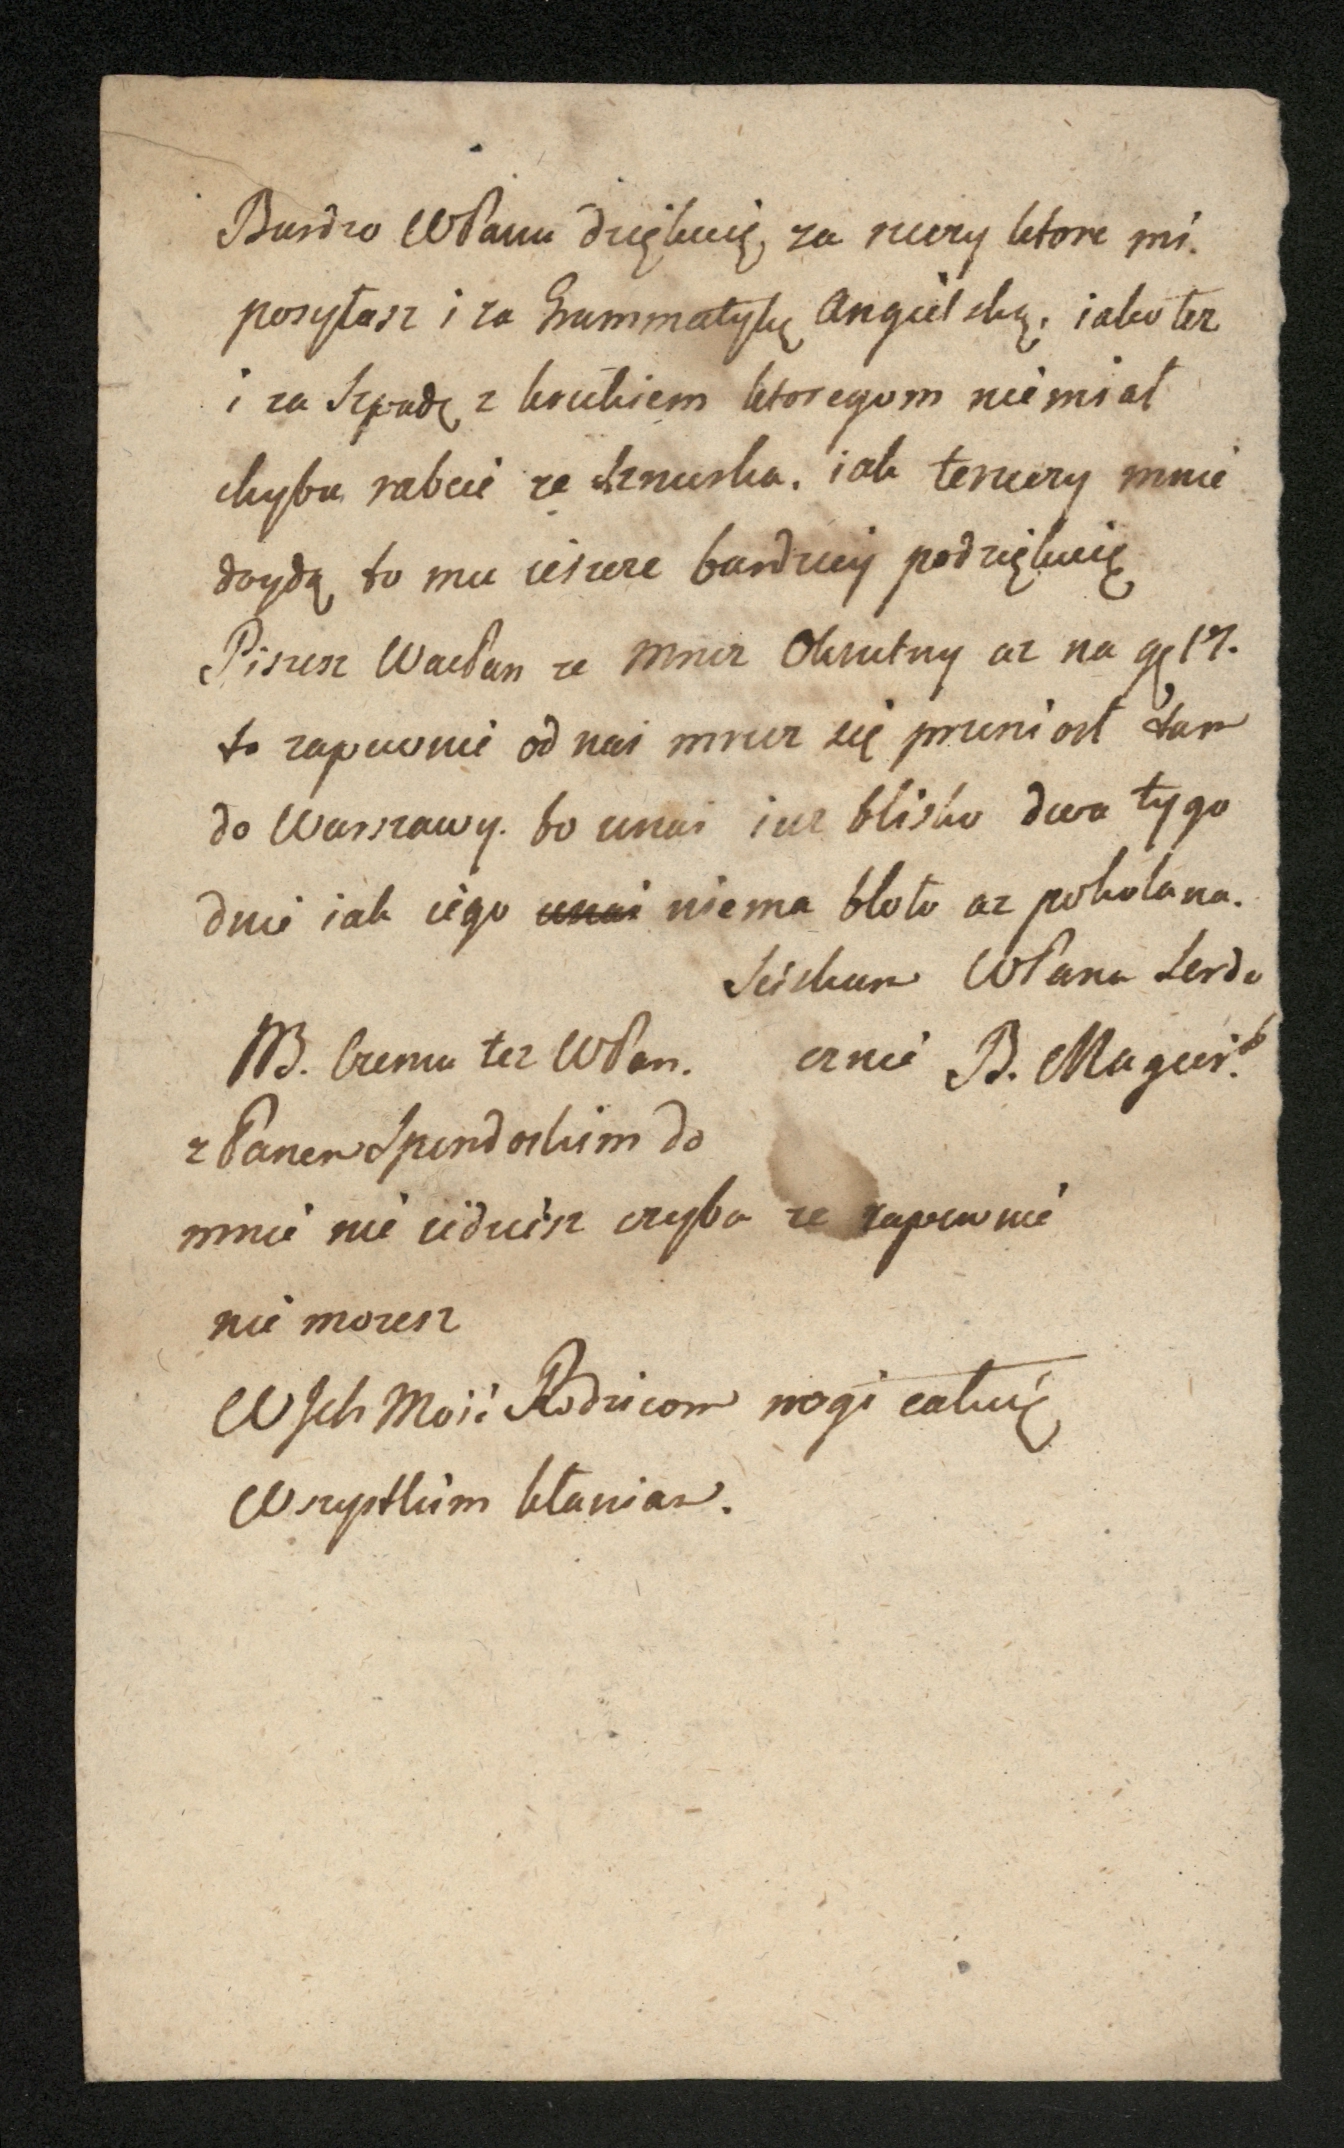 Bardzo WPanu dziękuię za rzeczy ktore mi.
posyłasz i za Grammatykę Angielską, iako tez
i za Szpadę z krukiem ktoregom nie miał
chyba rabcie ze sznurka. iak te rzeczy mnie
doydą to mu ieszcze bardziey podziękuię
Piszesz WacPan ze Mruz Okrutny az na gę 17.
to zapewnie od nas mruz się przeniosł tam
do Warszawy. bo unas iuz blisko dwa tygo
dnie iak iego unas niema błoto az pokolana.
Sciskam WPana Serde
NB. Czemu tez WPan. cznie B. Magier.
z Panem Spendoskim do
mnie nie iedziesz czyba ze zapewnie
nie mozesz
W Ich Mosć Rodzicom nogi całuię
Wszystkim kłaniam.